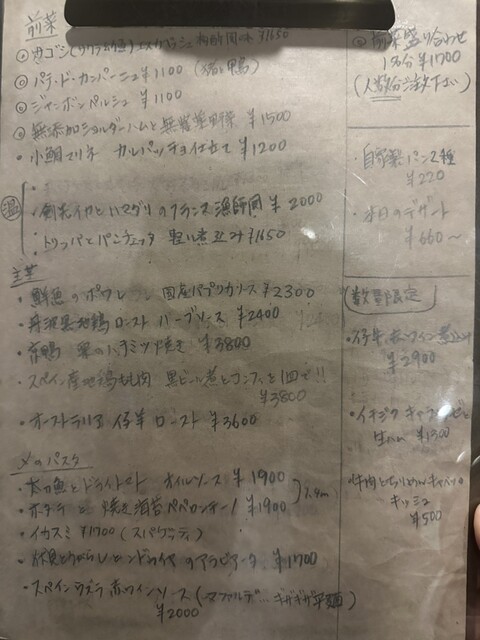 前菜
¥1650
パテ・ド・カンパーニュ ¥1100 (猪と鴨)
ジャンボンペルシュ ¥1100
無添加ショルダーハムと ¥1500
・小鯛マリネ カルパッチョ仕立て ¥1200
温
・剣先イカとハマグリのフランス漁師風 ¥2000
・トリッパとパンチェッタ 煮込み ¥1650
主菜
・鮮魚のポワレ 国産パプリカソース ¥2300
・丹波 地鶏ロースト ハーブソース ¥2400
ハチミツ焼き ¥3800
・スペイン産 もも肉 黒ビール煮とコンフィと1皿で!!
¥3800
・オーストラリア 仔羊 ロースト ¥3600
〆のパスタ
・太刀魚とドライトマト オイルソース ¥1900
・ホタテと焼き海苔 ペペロンチーノ ¥1900
・イカスミ ¥1700 (スパゲッティ)
・伏見とうがらしと のアラビアータ ¥1700
・スペイン 赤ワインソース (マファルデ… ギザギザ平麺)
¥2000
前菜盛り合わせ
1人分 ¥1700
(人数分ご注文下さい)
・自家製パン2種
¥220
・本日のデザート
¥660〜
数量限定
・仔牛 赤ワイン煮込み
¥2900
・イチジク キャラメリゼと
生ハム ¥1300
・牛肉と キャベツの
キッシュ
¥500